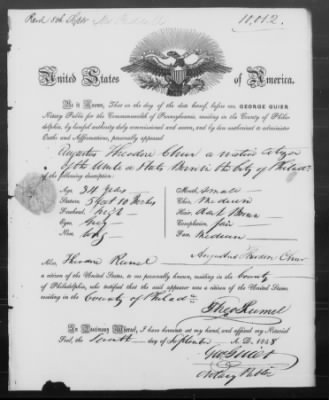 Recd 8th Sept
11,112.
United States of America.
Be it Known, That on the day of the date hereof, before me, GEORGE GUIER
Notary Public for the Commonwealth of Pennsylvania, residing in the County of Phila-
delphia, by lawful authority duly commissioned and sworn, and by law authorized to administer
Oaths and Affirmations, personally appeared
Augustus Theodore a native citizen
of the United States Born in the City of Philada
of the following description:
Age, 34 years Mouth, small
Stature, 5 feet 10 Inches Chin, Medium
Forehead, high Hair, Dark Brown
Eyes, Grey Complexion, fair
Nose, long Face, Medium
Augustus Theodore
Also, Theodore Rumel
a citizen of the United States, to me personally known, residing in the County
of Philadelphia, who testified that the said appearer was a citizen of the United States
residing in the County of Philada
Theo Rumel
In Testimony Whereof, I have hereunto set my hand, and affixed my Notarial
Seal, the Seventh day of September A. D. 1848
Geo Guier
Notary Public